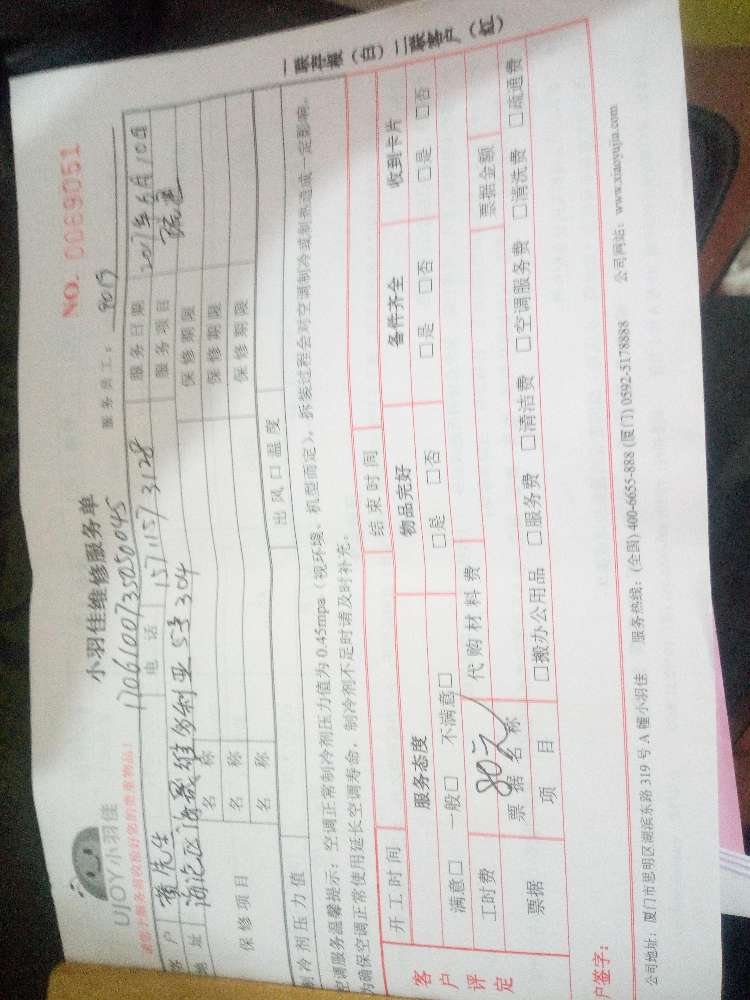 UJOY小羽佳
小羽佳维修服务单
NO. 0069051
请您与服务员收检好您的贵重物品!
170610073505004S
服务员工:
客户 黄先生 电话 15711573128 服务日期 2017年6月10日
地址 海沧区海裕维多利亚5号304 服务项目
保修项目 名称 保修期限
名称 保修期限
名称 保修期限
制冷剂压力值 出风口温度
空调服务温馨提示:空调正常制冷剂压力值为 0.45mpa(视环境、机型而定)。拆装过程会对空调制冷或制热造成一定影响。
为确保空调正常使用延长空调寿命,制冷剂不足时请及时补充。
一联存根(白)二联客户(红)
客户评定 开工时间 结束时间
服务态度 物品完好 备件齐全 收到卡片
满意□ 一般□ 不满意□ □是 □否 □是 □否 □是 □否
工时费 80元 代购材料费
票据 票据名称 票据金额
项目 □搬办公用品 □服务费 □清洁费 □空调服务费 □清洗费 □疏通费
户签字:
公司地址:厦门市思明区湖滨东路 319 号 A 幢小羽佳 服务热线:(全国) 400-6655-888 (厦门) 0592-5178888 公司网站:www.xiaoyujia.com